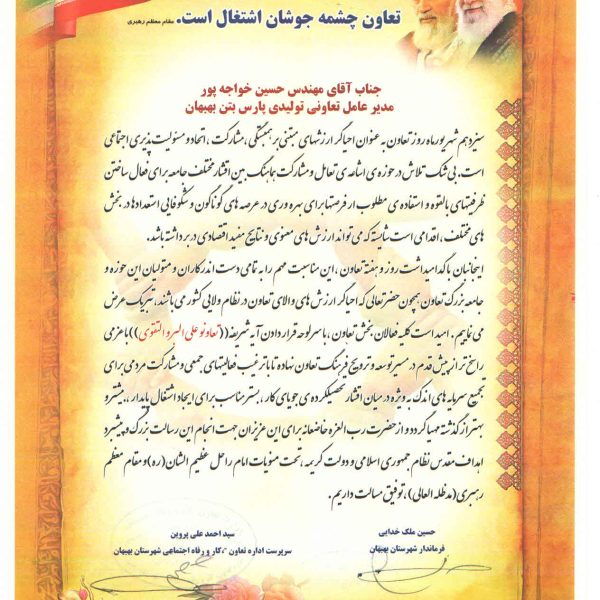 تعاون چشمه جوشان اشتغال است. مقام معظم رهبری
جناب آقای مهندس حسین خواجه پور
مدیر عامل تعاونی تولیدی پارس بتن بهبهان
سیزدهم شهریورماه روز تعاون به عنوان احیاگر ارزشهای مبتنی بر همبستگی ، مشارکت ، اتحاد و مسئولیت پذیری اجتماعی
است. بی شک تلاش در حوزه ی اشاعه ی تعامل و مشارکت هماهنگ بین اقشار مختلف جامعه برای فعال ساختن
ظرفیتهای بالقوه و استفاده ی مطلوب از فرصتها برای بهره وری در عرصه های گوناگون و شکوفائی استعدادها در بخش
های مختلف ، اقدامی است شایسته که می تواند ارزش های معنوی و نتایج مفید اقتصادی در بر داشته باشد.
اینجانبان با گرامیداشت روز و هفته تعاون ، این مناسبت مهم را به تمامی دست اندرکاران و متولیان این حوزه و
جامعه بزرگ تعاون بهمچون حضرتعالی که احیاگر ارزش های والای تعاون در نظام ولایی کشور می باشند، تبریک عرض
می نماییم . امید است کلیه فعالان بخش تعاون ، با سرلوحه قرار دادن آیه شریفه ((تعاونو علی البر و التقوی)) با عزمی
راسخ تر از پیش قدم در مسیر توسعه و ترویج فرهنگ تعاون نهاده تا با ترغیب فعالیتهای جمعی و مشارکت مردمی برای
تجمیع سرمایه های اندک به ویژه در میان اقشار تحصیلکرده ی جویای کار ، بستر مناسب برای ایجاد اشتغال پایدار ، بیشتر و
بهتر از گذشته مهیا گردد و از حضرت رب العزه خاضعانه برای این عزیزان جهت انجام این رسالت بزرگ و پیشبرد
اهداف مقدس نظام جمهوری اسلامی و دولت کریمه ، تحت منویات امام راحل عظیم الشان (ره) و مقام معظم
رهبری (مدظله العالی) ، توفیق مسالت داریم .
حسین ملک خدایی
فرماندار شهرستان بهبهان
سید احمد علی پروین
سرپرست اداره تعاون ،کار و رفاه اجتماعی شهرستان بهبهان